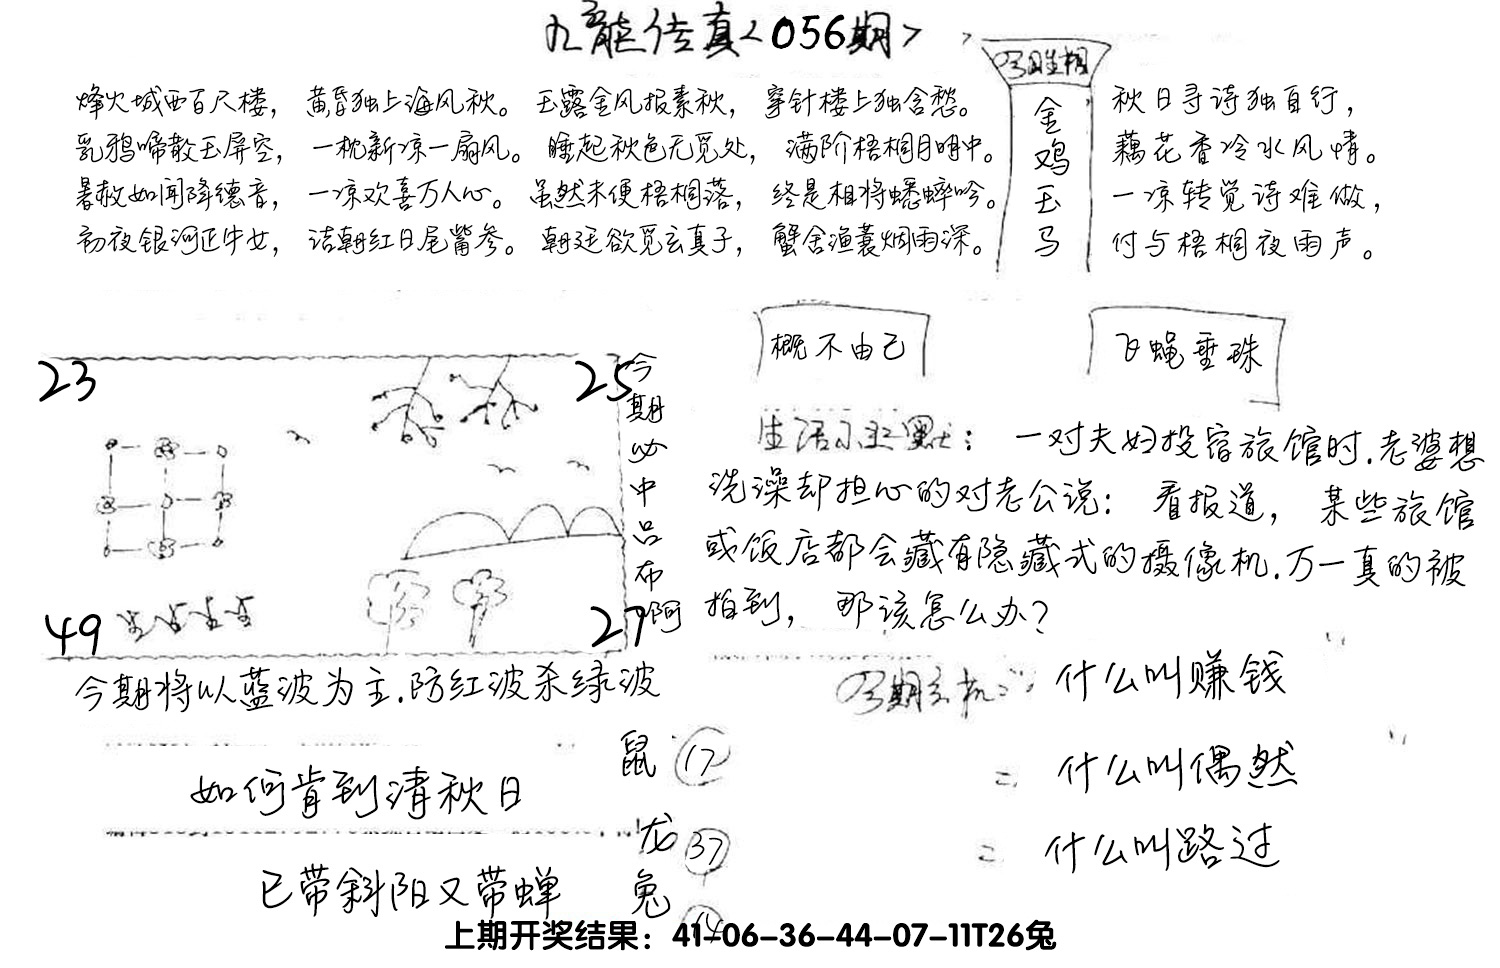 九龙传真<056期>
烽火城西百尺楼，黄昏独上海风秋。玉露金风报素秋，穿针楼上独含愁。
乳鸦啼散玉屏空，一枕新凉一扇风。睡起秋色无觅处，满阶梧桐月明中。
暑赦如闻降德音，一凉欢喜万人心。虽然未便梧桐落，终是相将蟋蟀吟。
初夜银河正牛女，诘朝红日尾觜参。朝廷欲觅玄真子，蟹舍渔蓑烟雨深。
金鸡玉马
秋日寻诗独自行，
藕花香冷水风情。
一凉转觉诗难做，
付与梧桐夜雨声。
概不由己
飞蝇垂珠
23
25
49
27
今期必中吕布啊
生活小幽默：一对夫妇投宿旅馆时.老婆想
洗澡却担心的对老公说：看报道，某些旅馆
或饭店都会藏有隐藏式的摄像机.万一真的被
拍到，那该怎么办？
今期将以蓝波为主.防红波杀绿波
今期玄机：什么叫赚钱
二 什么叫偶然
二 什么叫路过
如何肯到清秋日
已带斜阳又带蝉
鼠 17
龙 37
兔
上期开奖结果：41-06-36-44-07-11T26兔